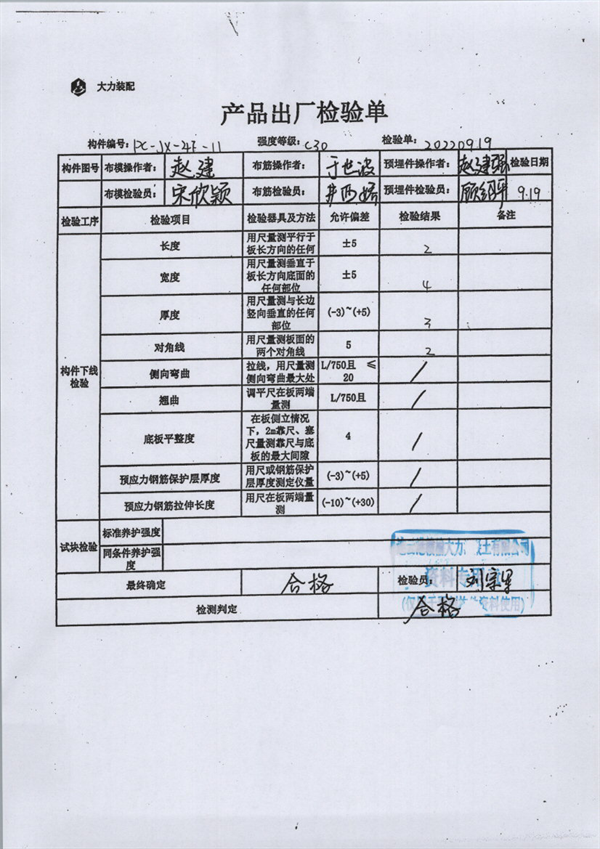 大力装配
产品出厂检验单
构件编号: PC-JX-4F-11 强度等级: C30 检验单: 20220919
构件图号 布模操作者: 赵建 布筋操作者: 于世波 预埋件操作者: 赵建强 检验日期
布模检验员: 宋欣颖 布筋检验员: 预埋件检验员: 9.19
检验工序 检验项目 检验器具及方法 允许偏差 检验结果 备注
构件下线检验
长度 用尺量测平行于板长方向的任何 ±5 2
宽度 用尺量测垂直于板长方向底面的任何部位 ±5 4
厚度 用尺量测与长边竖向垂直的任何部位 (-3)~(+5) 3
对角线 用尺量测板面的两个对角线 5 2
侧向弯曲 拉线，用尺量测侧向弯曲最大处 L/750且 ≤20 /
翘曲 调平尺在板两端量测 L/750且 /
底板平整度 在板侧立情况下，2m靠尺、塞尺量测靠尺与底板的最大间隙 4 /
预应力钢筋保护层厚度 用尺或钢筋保护层厚度测定仪量 (-3)~(+5) /
预应力钢筋拉伸长度 用尺在板两端量测 (-10)~(+30) /
试块检验 标准养护强度
同条件养护强度
最终确定 合格 检验员:
检测判定 合格